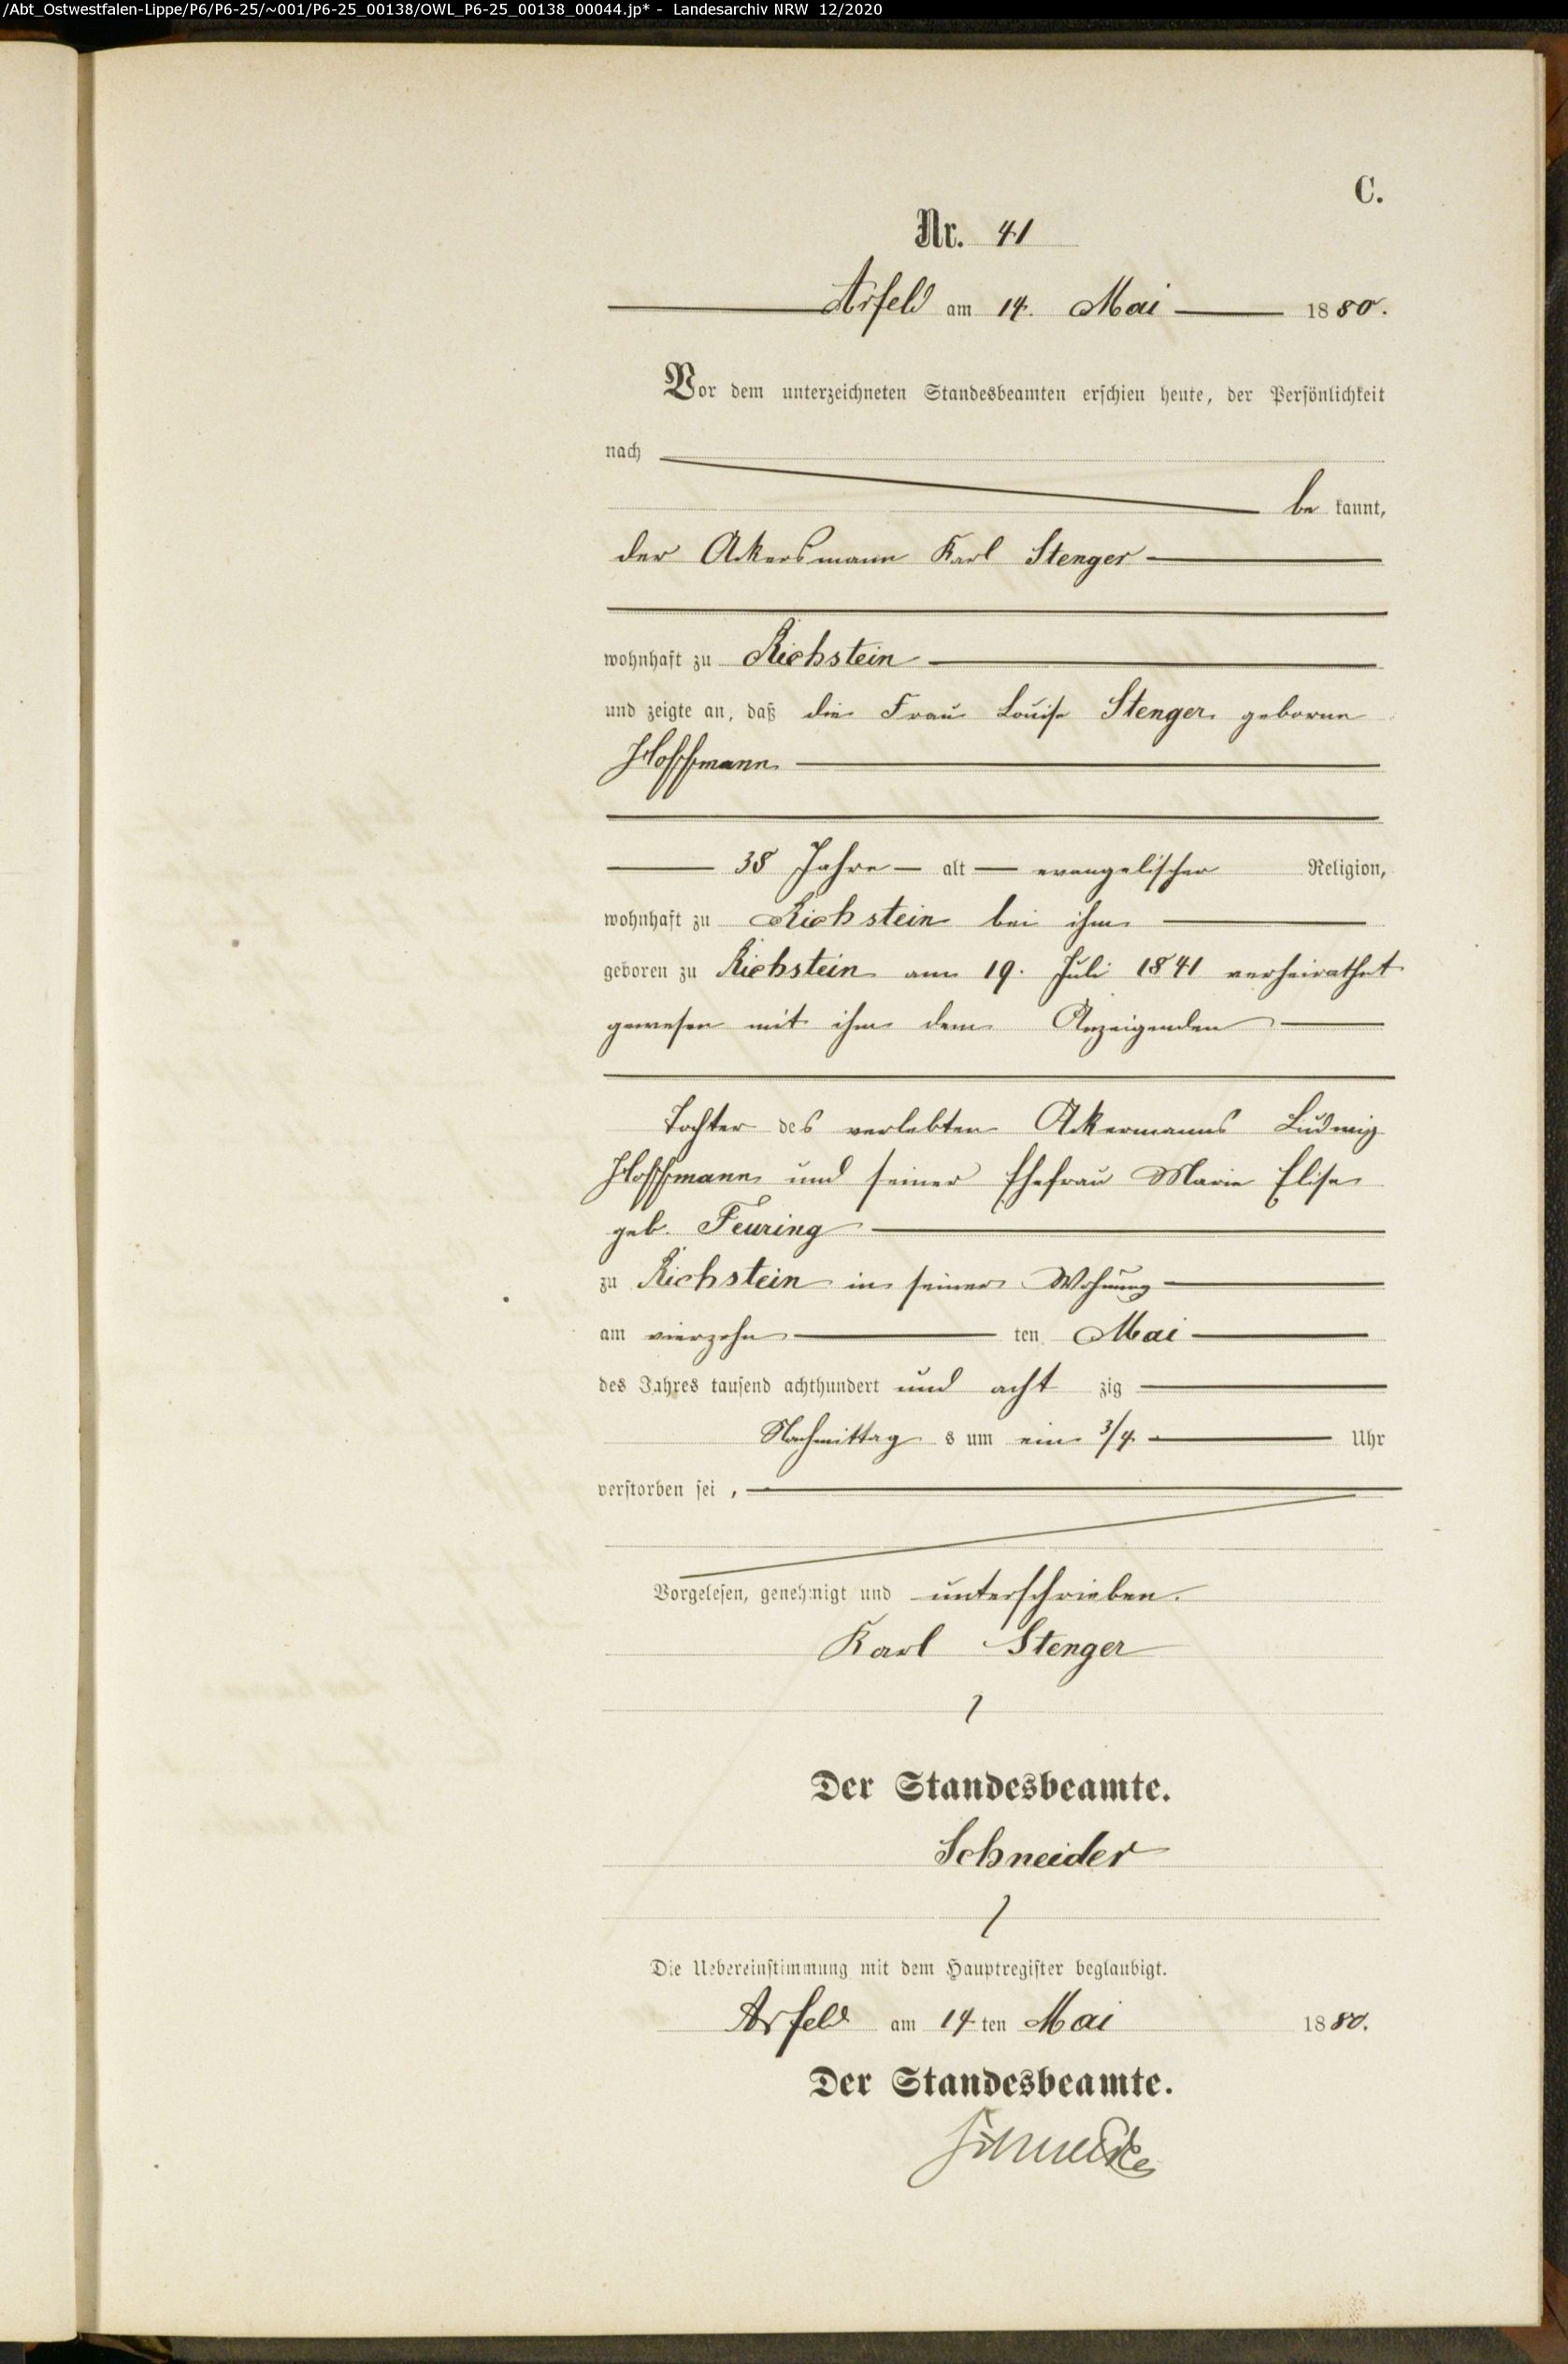 /Abt_Ostwestfalen-Lippe/P6/P6-25/~001/P6-25_00138/OWL_P6-25_00138_00044.jp* - Landesarchiv NRW 12/2020
C.
Nr. 41
Arfeld am 14. Mai 1880.
Vor dem unterzeichneten Standesbeamten erschien heute, der Persönlichkeit
nach
be kannt,
der Akersmann Karl Stenger
wohnhaft zu Richstein
und zeigte an, daß die Frau Louise Stenger geborne
Hoffmann
38 Jahre alt evangelischer Religion,
wohnhaft zu Richstein bei ihm
geboren zu Richstein am 19. Juli 1841 verheirathet
gewesen mit ihm dem Anzeigenden
Tochter des verlebten Akermanns Ludwig
Hoffmann und seiner Ehefrau Marie Elise
geb. Feuring
zu Richstein in seiner Wohnung
am vierzehn ten Mai
des Jahres tausend achthundert und acht zig
Nachmittag s um ein 3/4 Uhr
verstorben sei,
Vorgelesen, genehmigt und unterschrieben.
Karl Stenger
Der Standesbeamte.
Schneider
Die Uebereinstimmung mit dem Hauptregister beglaubigt.
Arfeld am 14 ten Mai 1880.
Der Standesbeamte.
Schneider